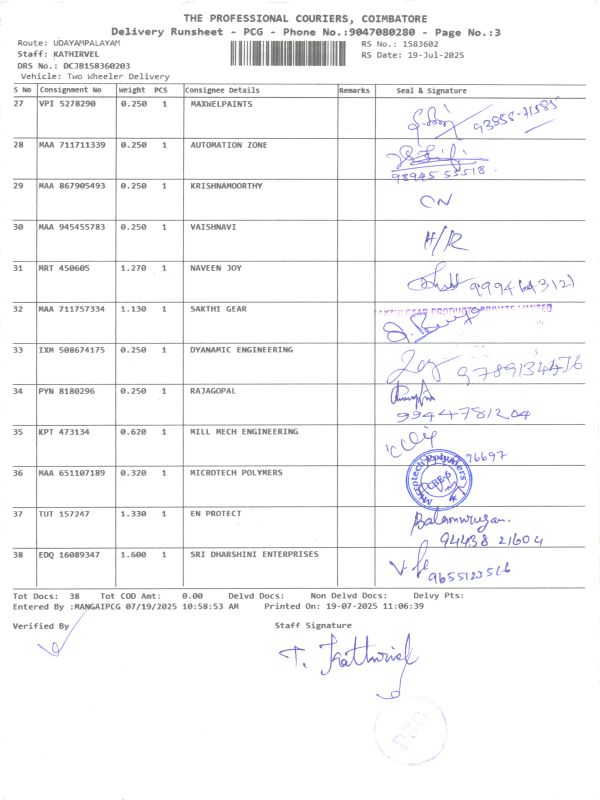 THE PROFESSIONAL COURIERS, COIMBATORE
Delivery Runsheet - PCG - Phone No.:9047080280 - Page No.:3
Route: UDAYAMPALAYAM RS No.: 1583602
Staff: KATHIRVEL RS Date: 19-Jul-2025
DRS No.: DCJB158360203
Vehicle: Two Wheeler Delivery
S No Consignment No Weight PCS Consignee Details Remarks Seal & Signature
27 VPI 5278290 0.250 1 MAXWELPAINTS 93855-71585
28 MAA 711711339 0.250 1 AUTOMATION ZONE
98945 55518
29 MAA 867905493 0.250 1 KRISHNAMOORTHY ON
30 MAA 945455783 0.250 1 VAISHNAVI H/R
31 MRT 450605 1.270 1 NAVEEN JOY 9994643121
32 MAA 711757334 1.130 1 SAKTHI GEAR SAKTHI GEAR PRODUCTS PRIVATE LIMITED
33 IXM 508674175 0.250 1 DYANAMIC ENGINEERING 9789134476
34 PYN 8180296 0.250 1 RAJAGOPAL
9944781204
35 KPT 473134 0.620 1 MILL MECH ENGINEERING
76697
36 MAA 651107189 0.320 1 MICROTECH POLYMERS Microtech Polymers CBE-6
37 TUT 157247 1.330 1 EN PROTECT Balamurugan.
94438 21604
38 EDQ 16089347 1.600 1 SRI DHARSHINI ENTERPRISES
9655123516
Tot Docs: 38 Tot COD Amt: 0.00 Delvd Docs: Non Delvd Docs: Delvy Pts:
Entered By :MANGAIPCG 07/19/2025 10:58:53 AM Printed On: 19-07-2025 11:06:39
Verified By Staff Signature
T. Kathirvel
PCG